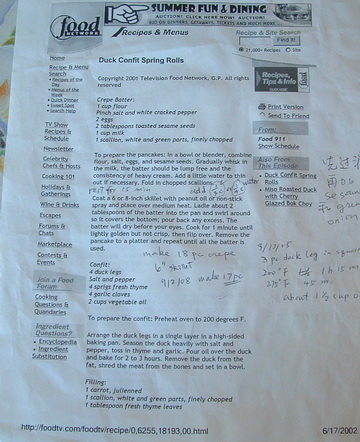 SUMMER FUN & DINING
AUCTION! CLICK HERE NOW! AUCTION!
food
NETWORK
Recipes & Menus
Recipe & Site Search
Find It!
21,000+ Recipes
Site
Home
Recipe & Menu
Search
• Recipes of the
Day
• Menus of the
Week
• Quick Dinner
• Sweet Spot
• Search Help
TV Show
Recipes &
Schedule
Newsletter
Celebrity
Chefs & Hosts
Cooking 101
Holidays &
Gatherings
Wine & Drinks
Escapes
Forums &
Chats
Marketplace
Contests &
Events
Join a Food
Forum
Cooking
Questions &
Quandaries
Ingredient
Questions?
• Encyclopedia
• Ingredient
Substitution
Duck Confit Spring Rolls
Copyright 2001 Television Food Network, G.P. All rights
reserved
Crepe Batter:
1 cup flour
Pinch salt and white cracked pepper
2 eggs
2 tablespoons toasted sesame seeds
1 cup milk
1 scallion, white and green parts, finely chopped
To prepare the pancakes: in a bowl or blender, combine
flour, salt, eggs, and sesame seeds. Gradually whisk in
the milk, the batter should be lump free and the
consistency of heavy cream. Add a little water to thin
out if necessary. Fold in chopped scallions.
15 min
add
water
Coat a 6 or 8-inch skillet with peanut oil or non-stick
spray and place over medium heat. Ladle about 2
tablespoons of the batter into the pan and swirl around
so it covers the bottom; pour back any excess. The
batter will dry before your eyes. Cook for 1 minute until
lightly golden but not crisp, then flip over. Remove the
pancake to a platter and repeat until all the batter is
used.
make 18 pcs crepe
6" skillet
9/2/08 make 17 pc
Confit:
4 duck legs
Salt and pepper
4 sprigs fresh thyme
4 garlic cloves
2 cups vegetable oil
To prepare the confit: Preheat oven to 200 degrees F.
Arrange the duck legs in a single layer in a high-sided
baking pan. Season the duck heavily with salt and
pepper, toss in thyme and garlic. Pour oil over the duck
and bake for 2 to 3 hours. Remove the duck from the
fat, shred the meat from the bones and set in a bowl.
Filling:
1 carrot, julienned
1 scallion, white and green parts, finely chopped
1 tablespoon fresh thyme leaves
Recipes,
Tips & Info
Print Version
Send To Friend
From:
Food 911
Show Schedule
Also From
This Episode
• Duck Confit Spring
Rolls
• Miso Roasted Duck
with Cherry
Glazed Bok Choy
green
onion
9/17/05
3 pc duck leg in square
200°F
1 h 15 m
45 m
about 1 ½ cup oil
http://foodtv.com/foodtv/recipe/0,6255,18193,00.html
6/17/2002